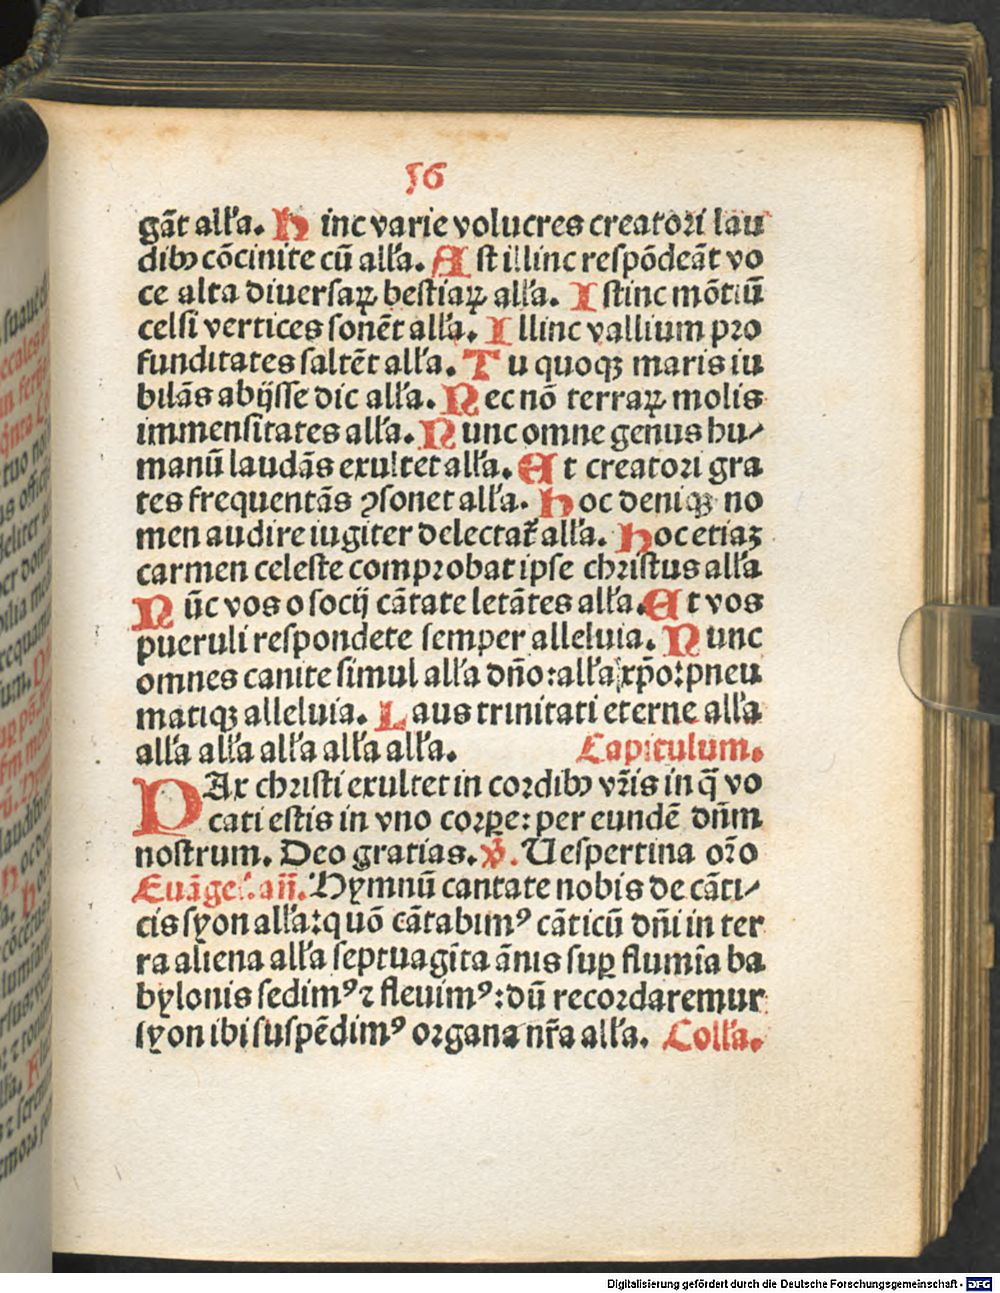 56
gāt alľa. Hinc varie volucres creatori lau
dibꝫ cōcinite cū alľa. Ast illinc respōdeāt vo
ce alta diuersaꝝ bestiaꝝ alľa. Istinc mōtiū
celsi vertices sonēt alľa. Illinc vallium pro
funditates saltēt alľa. Tu quoqꝫ maris iu
bilās abijsse dic alľa. Nec nō terraꝝ molis
immensitates alľa. Nunc omne genus hu⸗
manū laudās exultet alľa. Et creatori gra
tes frequentās ꝯsonet alľa. Hoc deniqꝫ no
men audire iugiter delectať alľa. Hoc etiaꝫ
carmen celeste comprobat ipse christus alľa
Nūc vos o socij cātate letātes alľa. Et vos
pueruli respondete semper alleluia. Nunc
omnes canite simul alľa dño: alľa xp̄o: pneu
matiqꝫ alleluia. Laus trinitati eterne alľa
alľa alľa alľa alľa alľa. Capitulum.
PAx christi exultet in cordibꝫ vr̄is in q̄ vo
cati estis in vno corꝑe: per eundē dn̄m
nostrum. Deo gratias. ℣. Vespertina or̄o
Euāgeľ. añ. Hymnū cantate nobis de cāti⸗
cis syon alľa: quō cātabimꝰ cāticū dn̄i in ter
ra aliena alľa septuagīta ānis suꝑ flumīa ba
bylonis sedimꝰ ⁊ fleuimꝰ: dū recordaremur
syon ibi suspēdimꝰ organa nr̄a alľa. Colľa.
Digitalisierung gefördert durch die Deutsche Forschungsgemeinschaft - DFG